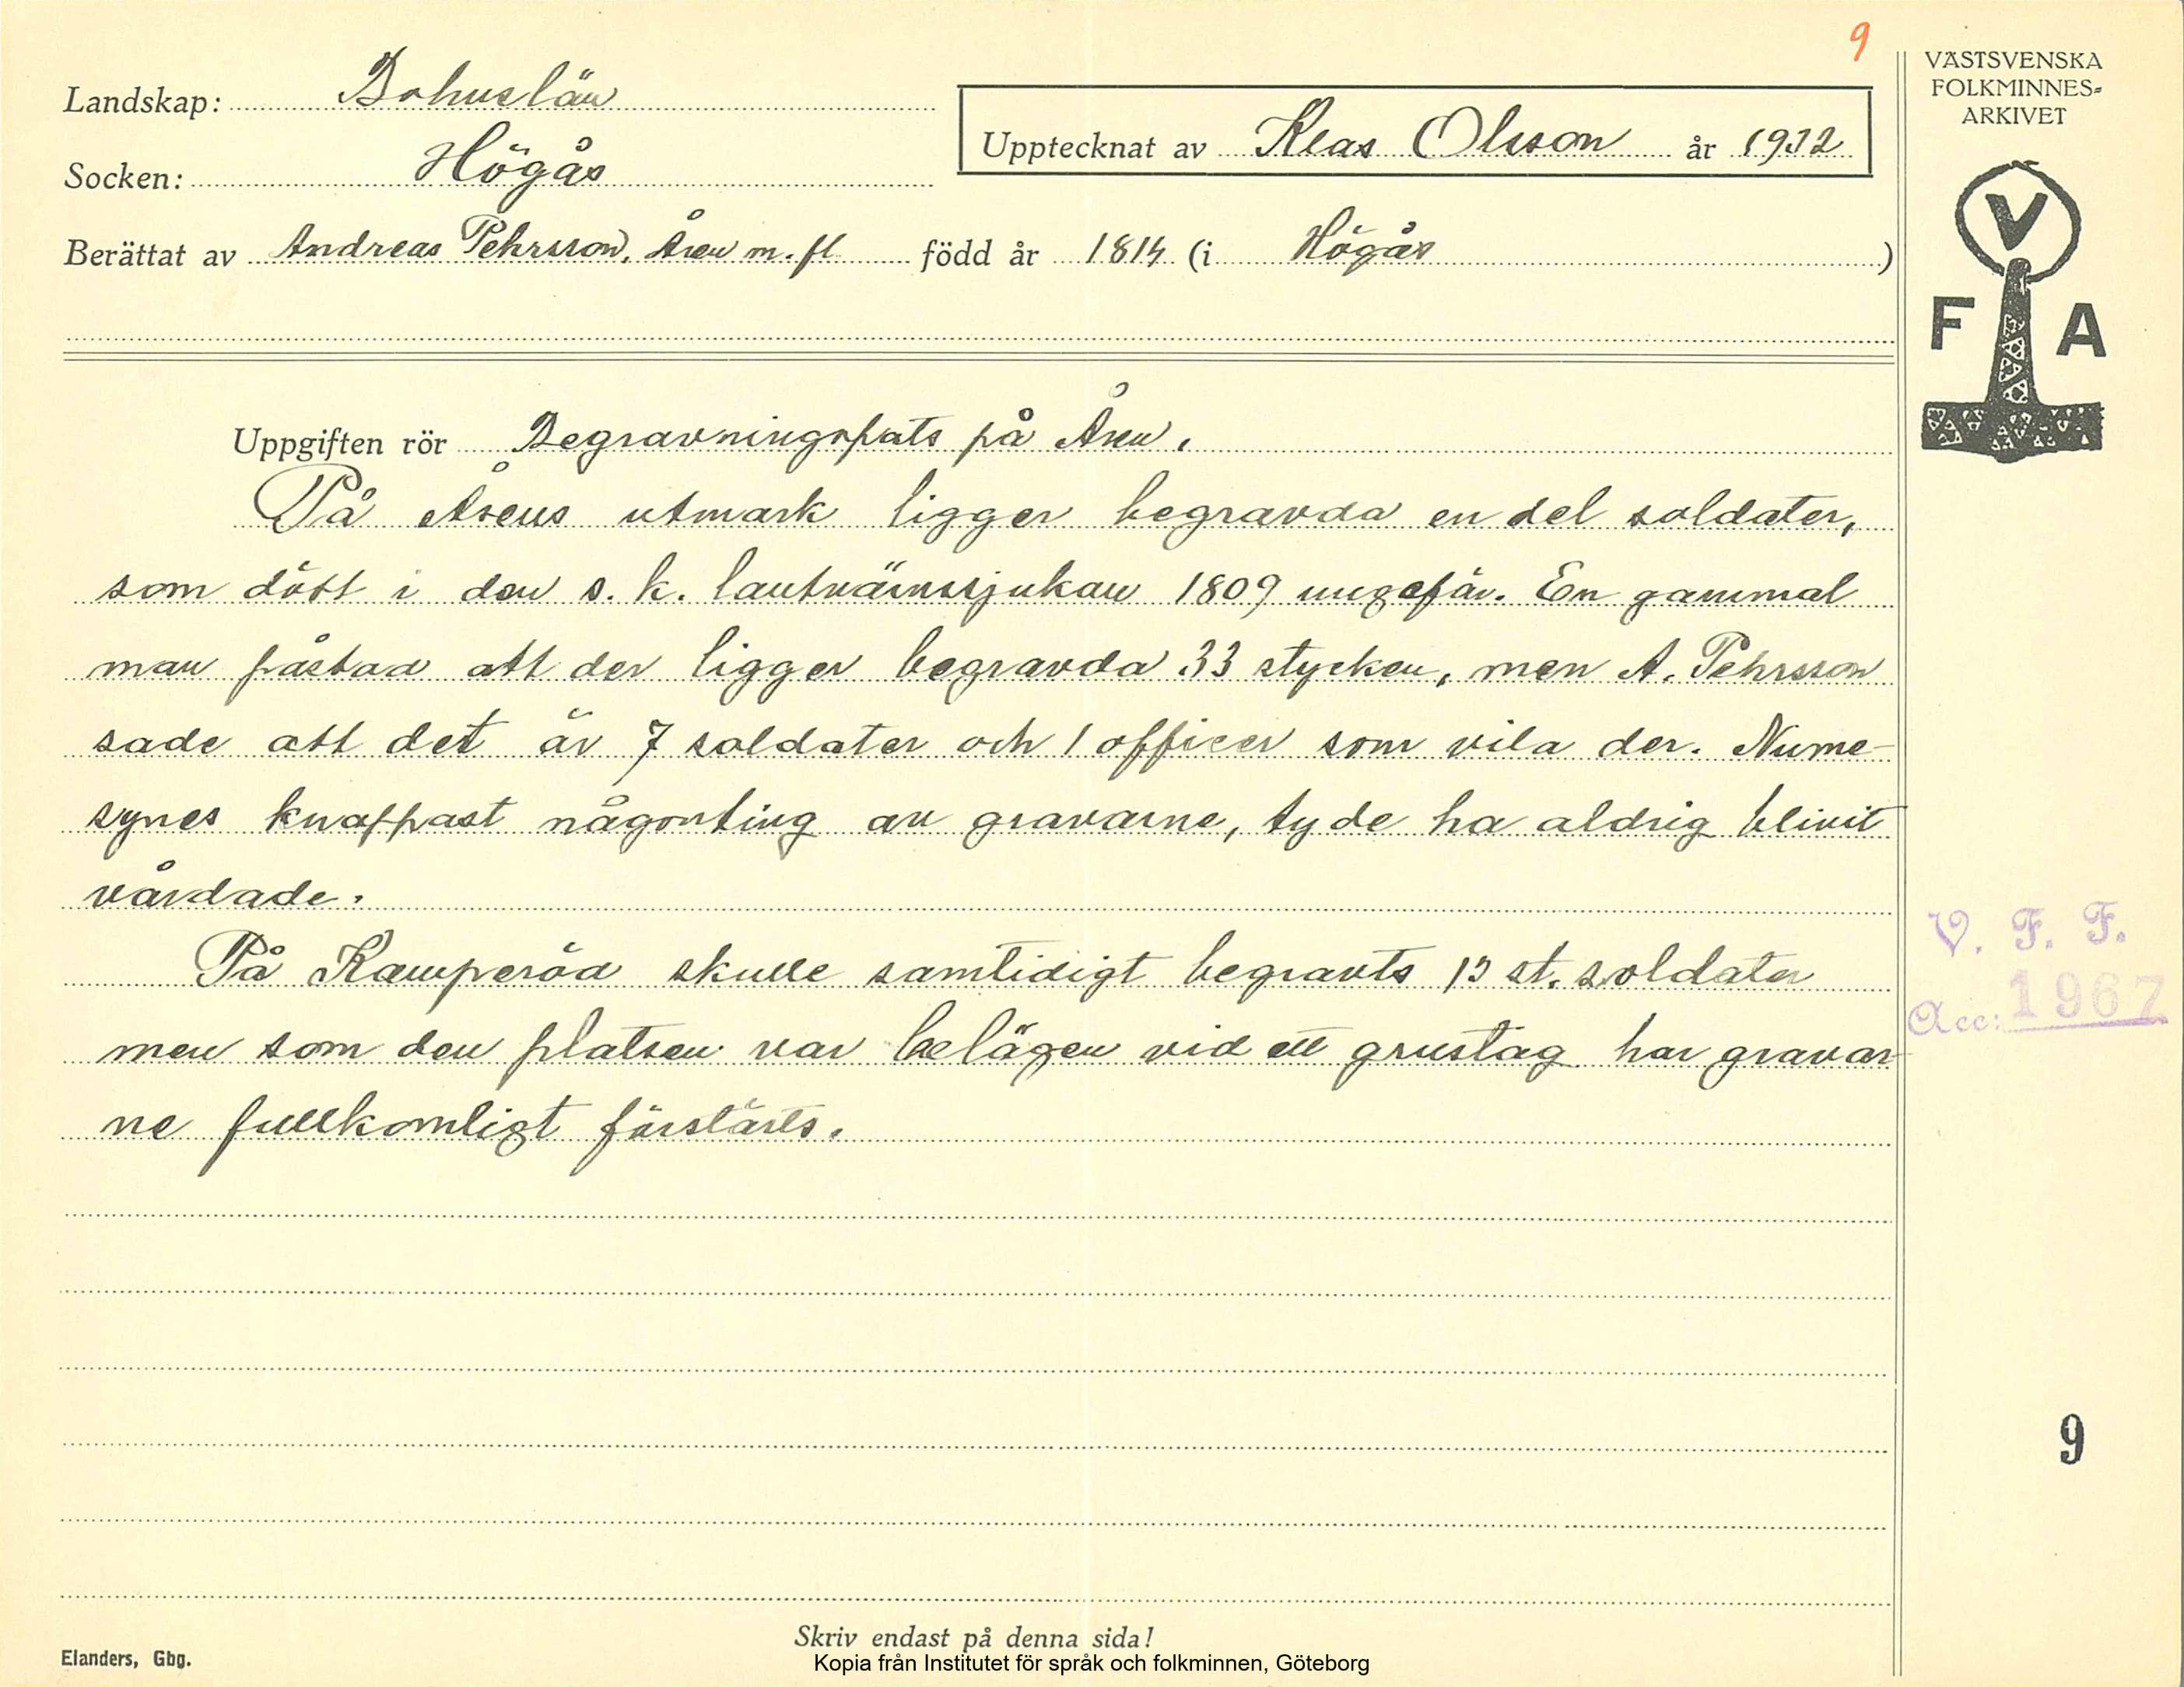 9
Landskap: Bohuslän
Socken: Högås
Upptecknat av Klas Olsson år 1932
Berättat av Andreas Pehrsson, Åsen m. fl född år 1814 (i Högås)
VÄSTSVENSKA
FOLKMINNES-
ARKIVET
V
F A
Uppgiften rör Begravningspats på Åsen.
På Åsens utmark ligger begravda en del soldater,
som dött i den s. k. lantvärnssjukan 1809 ungefär. En gammal
man påstod att der ligger begravda 33 stycken, men A. Pehrsson
sade att det är 7 soldater och 1 officer som vila der. Nume-
synes knappast någonting av gravarne, ty de ha aldrig blivit
vårdade.
På Kamperöd skulle samtidigt begravts 13 st. soldater
men som den platsen var belägen vid ett grustag har gravar-
ne fullkomligt förstörts.
V. F. F.
Acc: 1967
9
Skriv endast på denna sida!
Elanders, Gbg.
Kopia från Institutet för språk och folkminnen, Göteborg